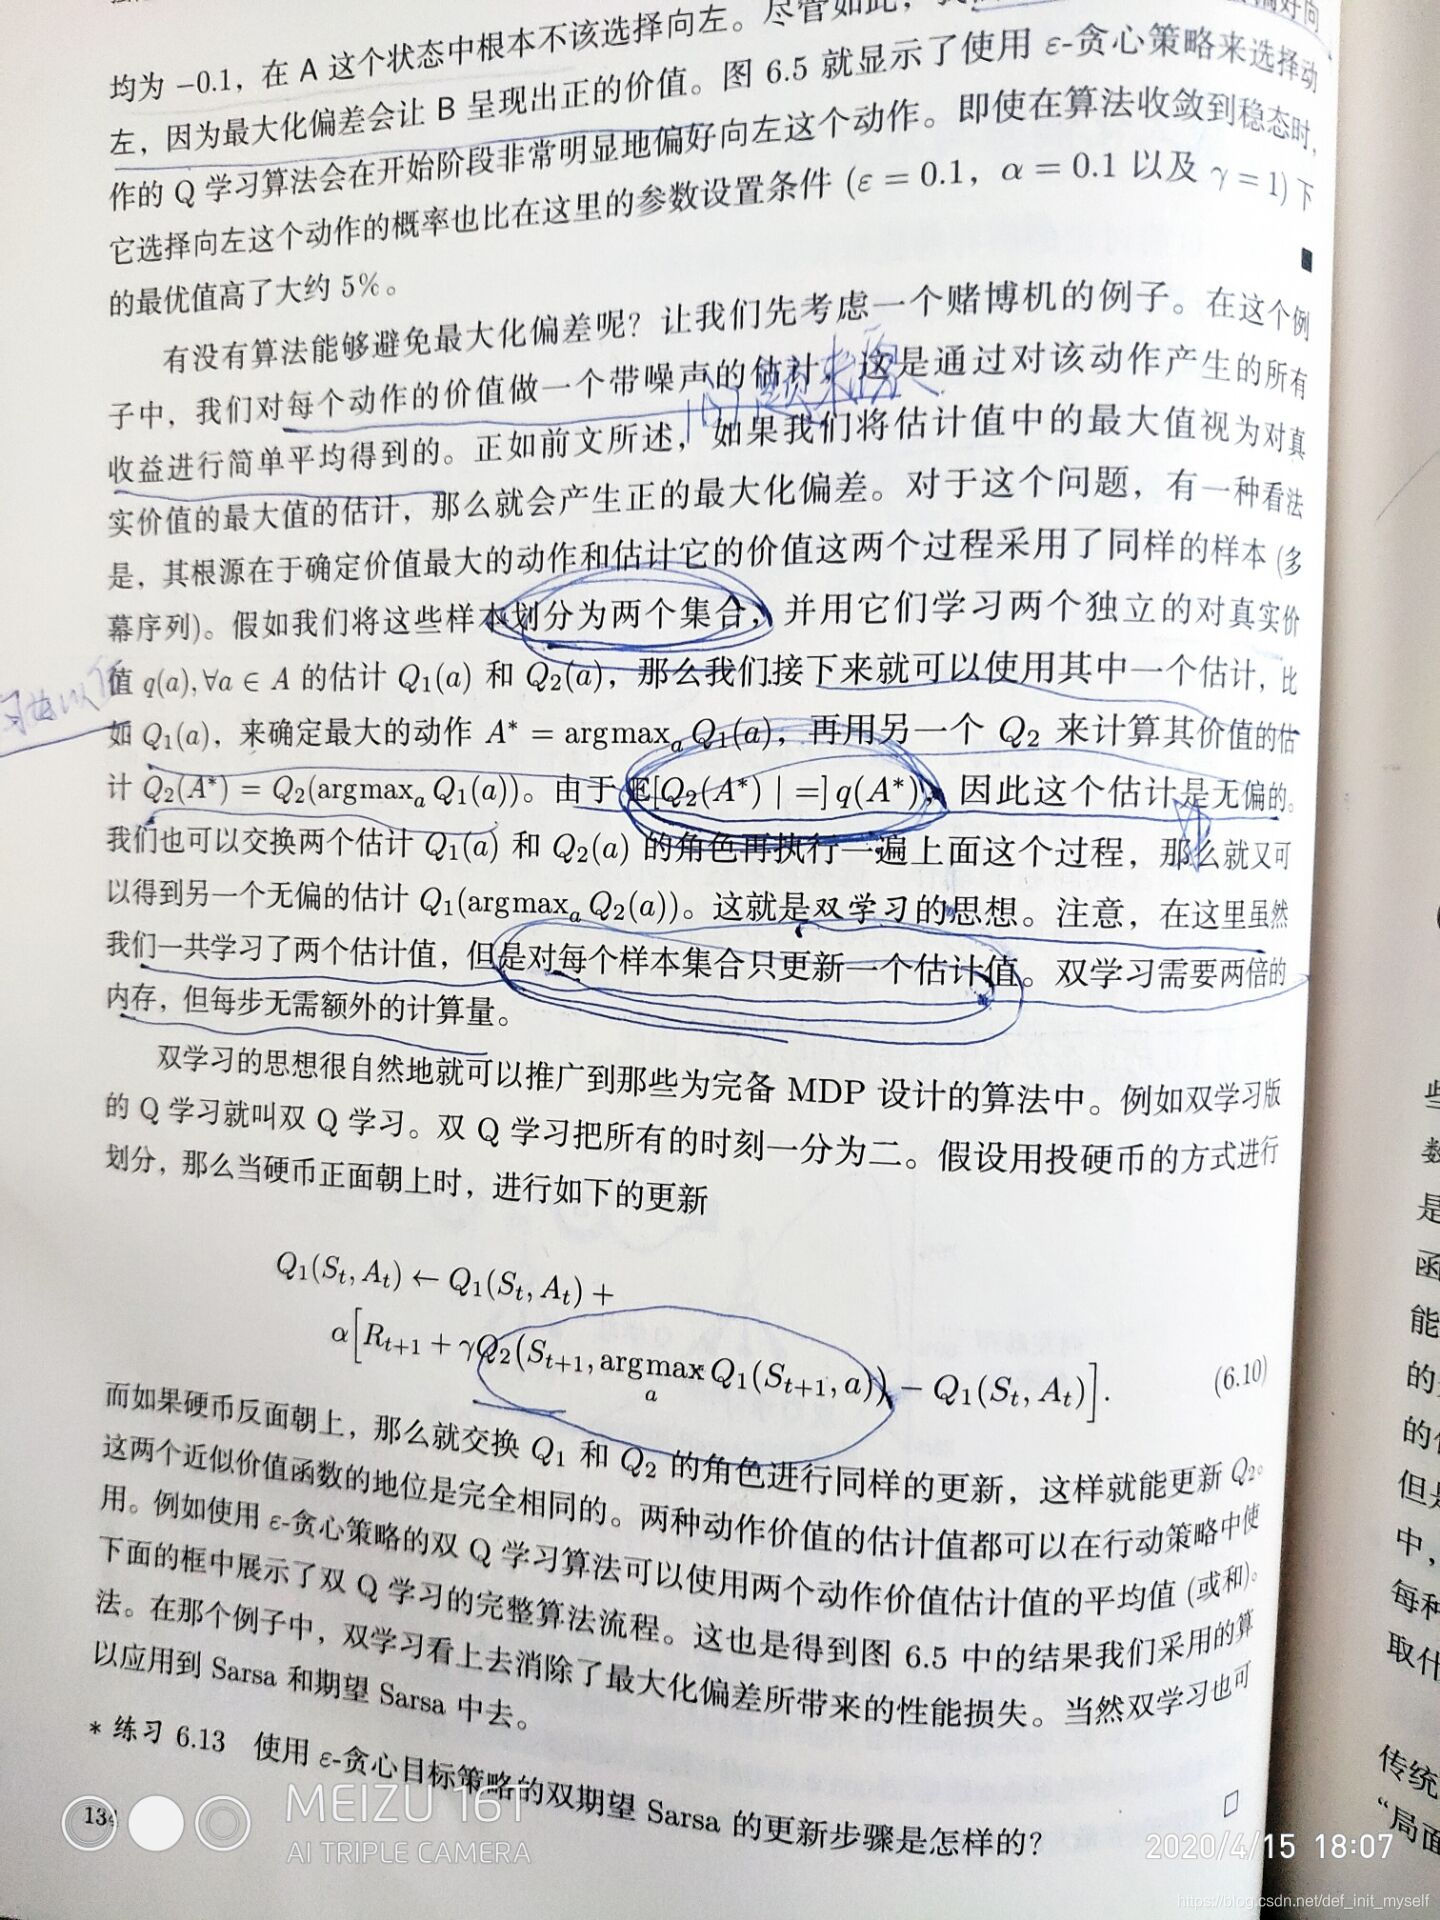 均为 −0.1，在 A 这个状态中根本不该选择向左。尽管如此，我
左，因为最大化偏差会让 B 呈现出正的价值。图 6.5 就显示了使用 ε-贪心策略来选择动
作的 Q 学习算法会在开始阶段非常明显地偏好向左这个动作。即使在算法收敛到稳态时，
它选择向左这个动作的概率也比在这里的参数设置条件 (ε = 0.1，α = 0.1 以及 γ = 1) 下
的最优值高了大约 5%。
有没有算法能够避免最大化偏差呢？让我们先考虑一个赌博机的例子。在这个例
子中，我们对每个动作的价值做一个带噪声的估计，这是通过对该动作产生的所有
问题来源
收益进行简单平均得到的。正如前文所述，如果我们将估计值中的最大值视为对真
实价值的最大值的估计，那么就会产生正的最大化偏差。对于这个问题，有一种看法
是，其根源在于确定价值最大的动作和估计它的价值这两个过程采用了同样的样本 (多
幕序列)。假如我们将这些样本划分为两个集合，并用它们学习两个独立的对真实价
值 q(a), ∀a ∈ A 的估计 Q₁(a) 和 Q₂(a)，那么我们接下来就可以使用其中一个估计，比
如 Q₁(a)，来确定最大的动作 A* = argmaxₐ Q₁(a)，再用另一个 Q₂ 来计算其价值的估
计 Q₂(A*) = Q₂(argmaxₐ Q₁(a))。由于 𝔼[Q₂(A*) | =] q(A*)，因此这个估计是无偏的。
我们也可以交换两个估计 Q₁(a) 和 Q₂(a) 的角色再执行一遍上面这个过程，那么就又可
以得到另一个无偏的估计 Q₁(argmaxₐ Q₂(a))。这就是双学习的思想。注意，在这里虽然
我们一共学习了两个估计值，但是对每个样本集合只更新一个估计值。双学习需要两倍的
内存，但每步无需额外的计算量。
双学习的思想很自然地就可以推广到那些为完备 MDP 设计的算法中。例如双学习版
的 Q 学习就叫双 Q 学习。双 Q 学习把所有的时刻一分为二。假设用投硬币的方式进行
划分，那么当硬币正面朝上时，进行如下的更新
Q₁(Sₜ, Aₜ) ← Q₁(Sₜ, Aₜ) +
α[Rₜ₊₁ + γQ₂(Sₜ₊₁, argmaxₐ Q₁(Sₜ₊₁, a)) − Q₁(Sₜ, Aₜ)]. (6.10)
而如果硬币反面朝上，那么就交换 Q₁ 和 Q₂ 的角色进行同样的更新，这样就能更新 Q₂。
这两个近似价值函数的地位是完全相同的。两种动作价值的估计值都可以在行动策略中使
用。例如使用 ε-贪心策略的双 Q 学习算法可以使用两个动作价值估计值的平均值 (或和)。
下面的框中展示了双 Q 学习的完整算法流程。这也是得到图 6.5 中的结果我们采用的算
法。在那个例子中，双学习看上去消除了最大化偏差所带来的性能损失。当然双学习也可
以应用到 Sarsa 和期望 Sarsa 中去。
* 练习 6.13 使用 ε-贪心目标策略的双期望 Sarsa 的更新步骤是怎样的？ □
134
MEIZU 16T
AI TRIPLE CAMERA
2020/4/15 18:07
https://blog.csdn.net/def_init_myself
些
数
是
函
能
的
的
但是
中，
每种
取什
传统
“局面